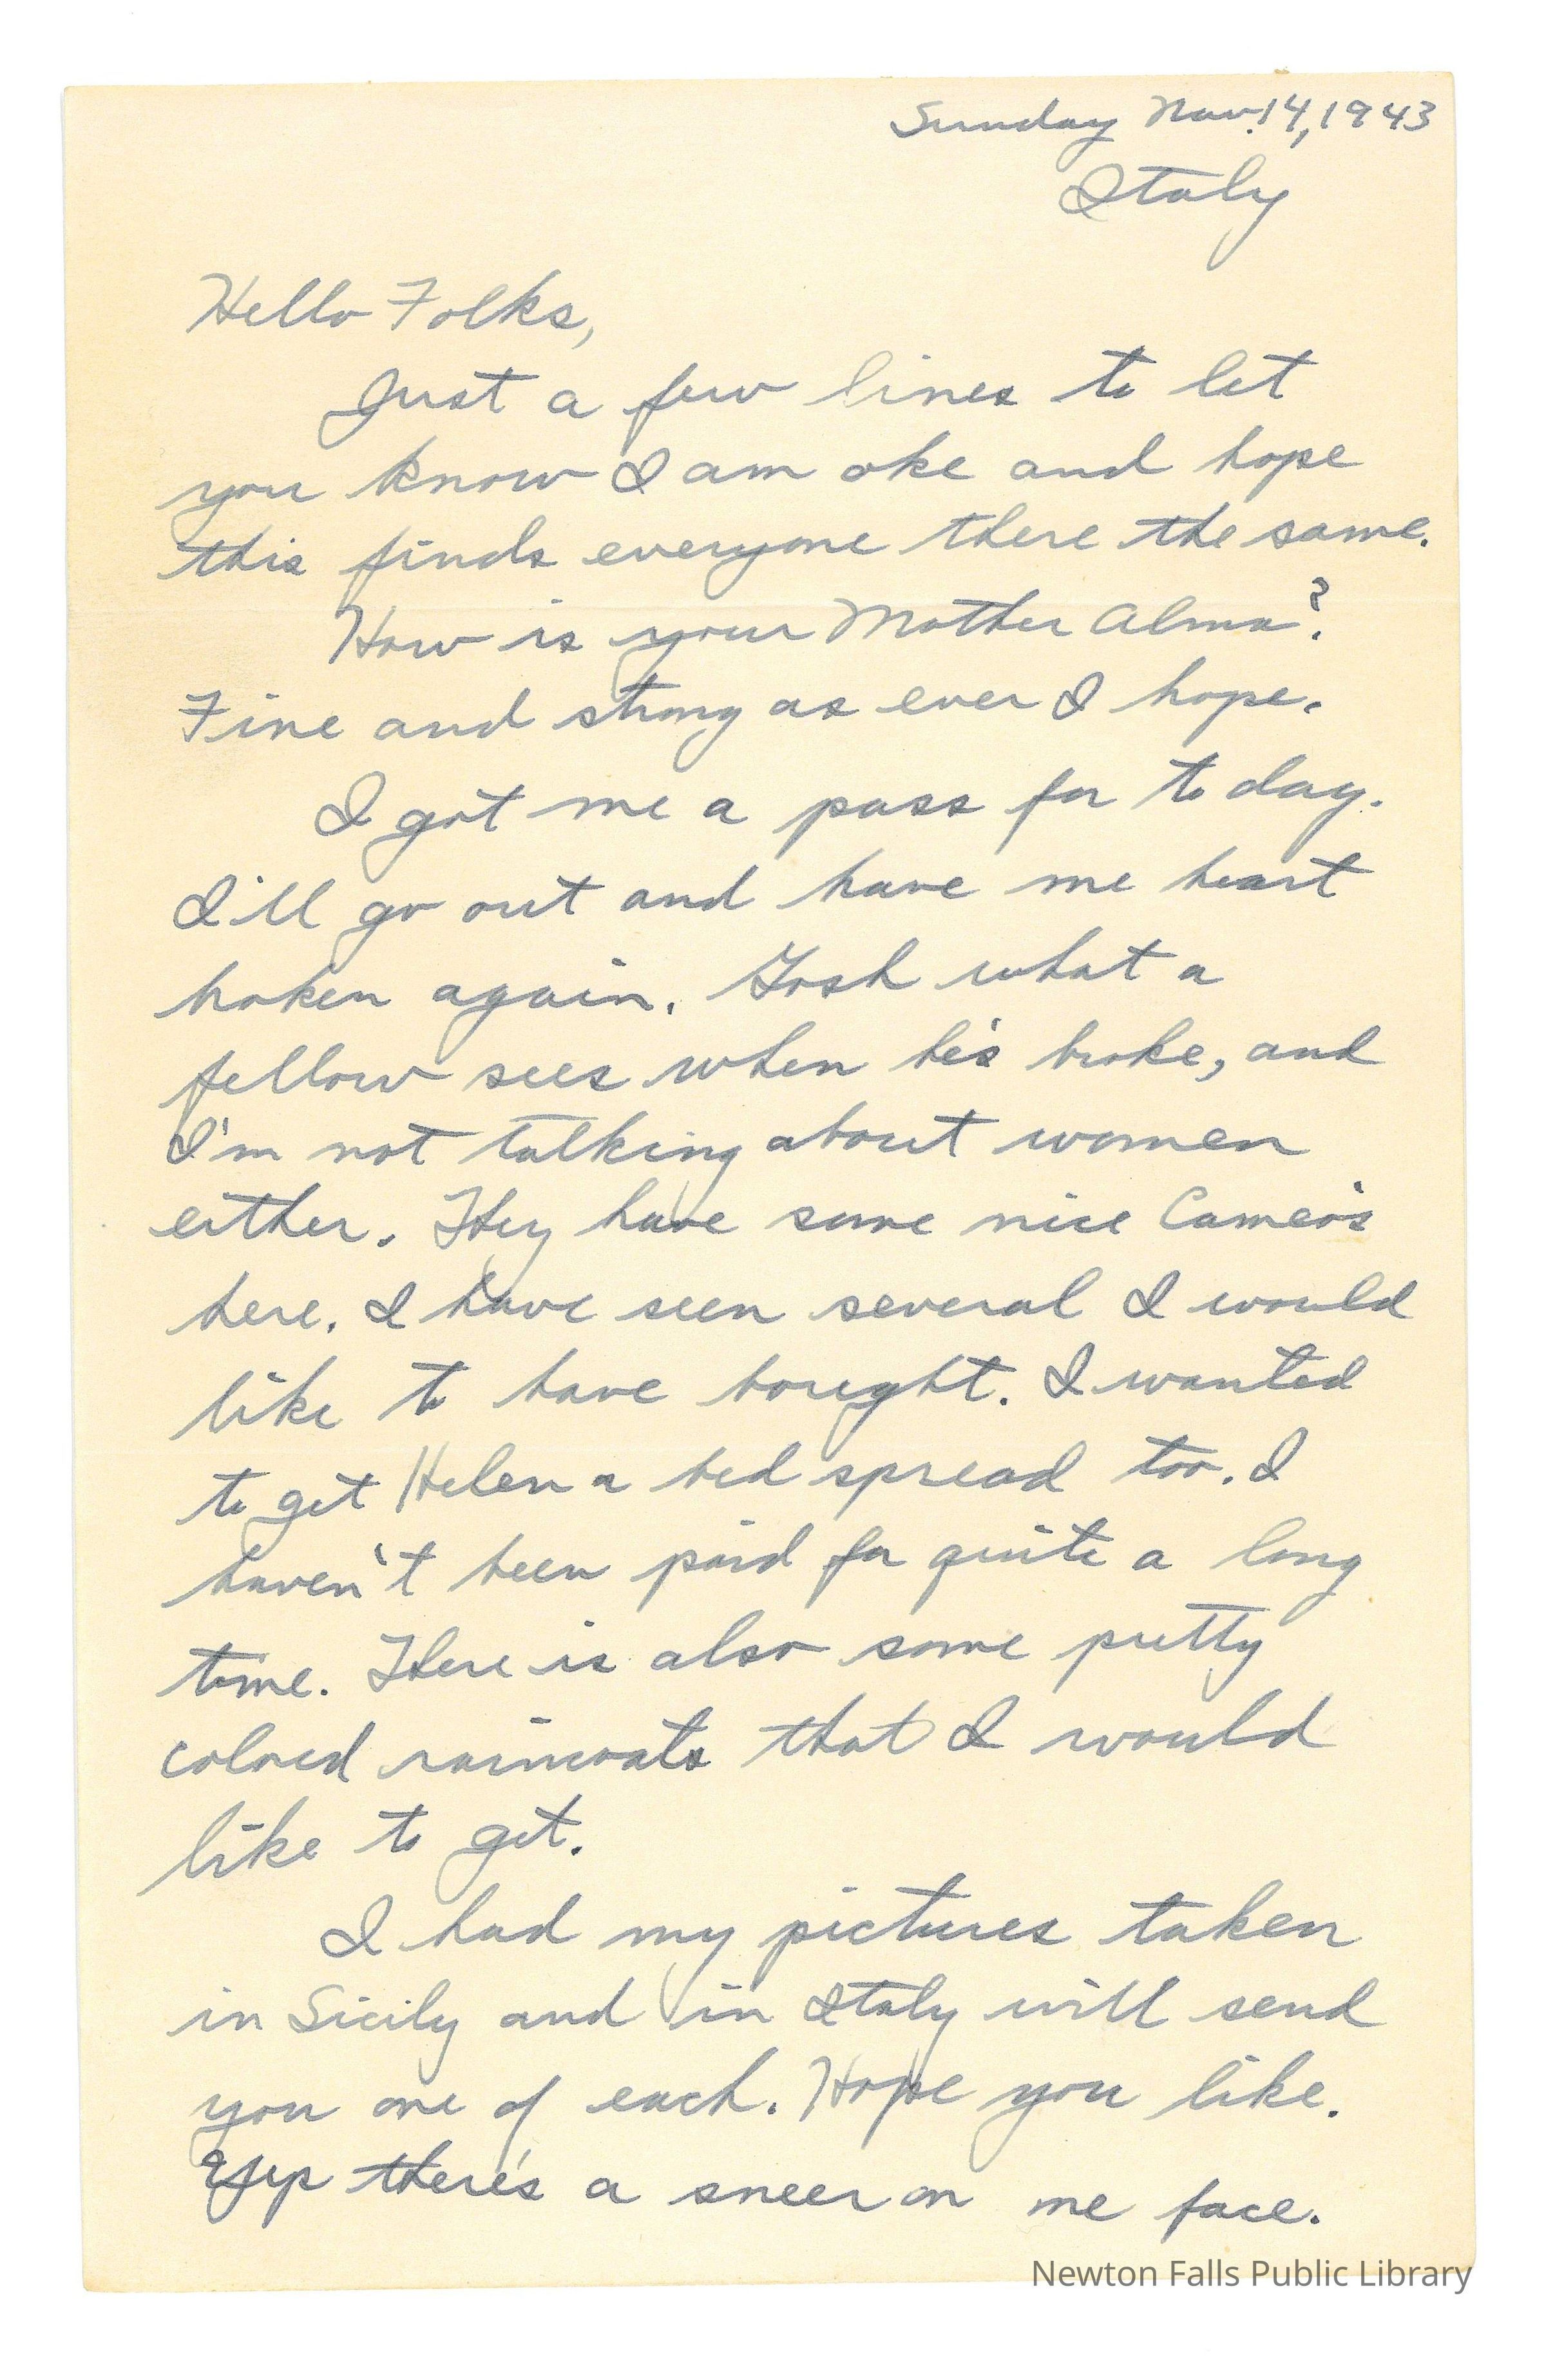 Sunday Nov. 14, 1943
Italy
Hello Folks,
Just a few lines to let
you know I am oke and hope
this finds everyone there the same.
How is your Mother Alma?
Fine and strong as ever I hope.
I got me a pass for to day.
I'll go out and have me heart
broken again. Gosh what a
fellow sees when he's broke, and
I'm not talking about women
either. They have some nice Cameo's
here. I have seen several I would
like to have bought. I wanted
to get Helen a bed spread too. I
haven't been paid for quite a long
time. There is also some pretty
colored raincoats that I would
like to get.
I had my pictures taken
in Sicily and in Italy will send
you one of each. Hope you like.
Yep there's a sneer on me face.
Newton Falls Public Library